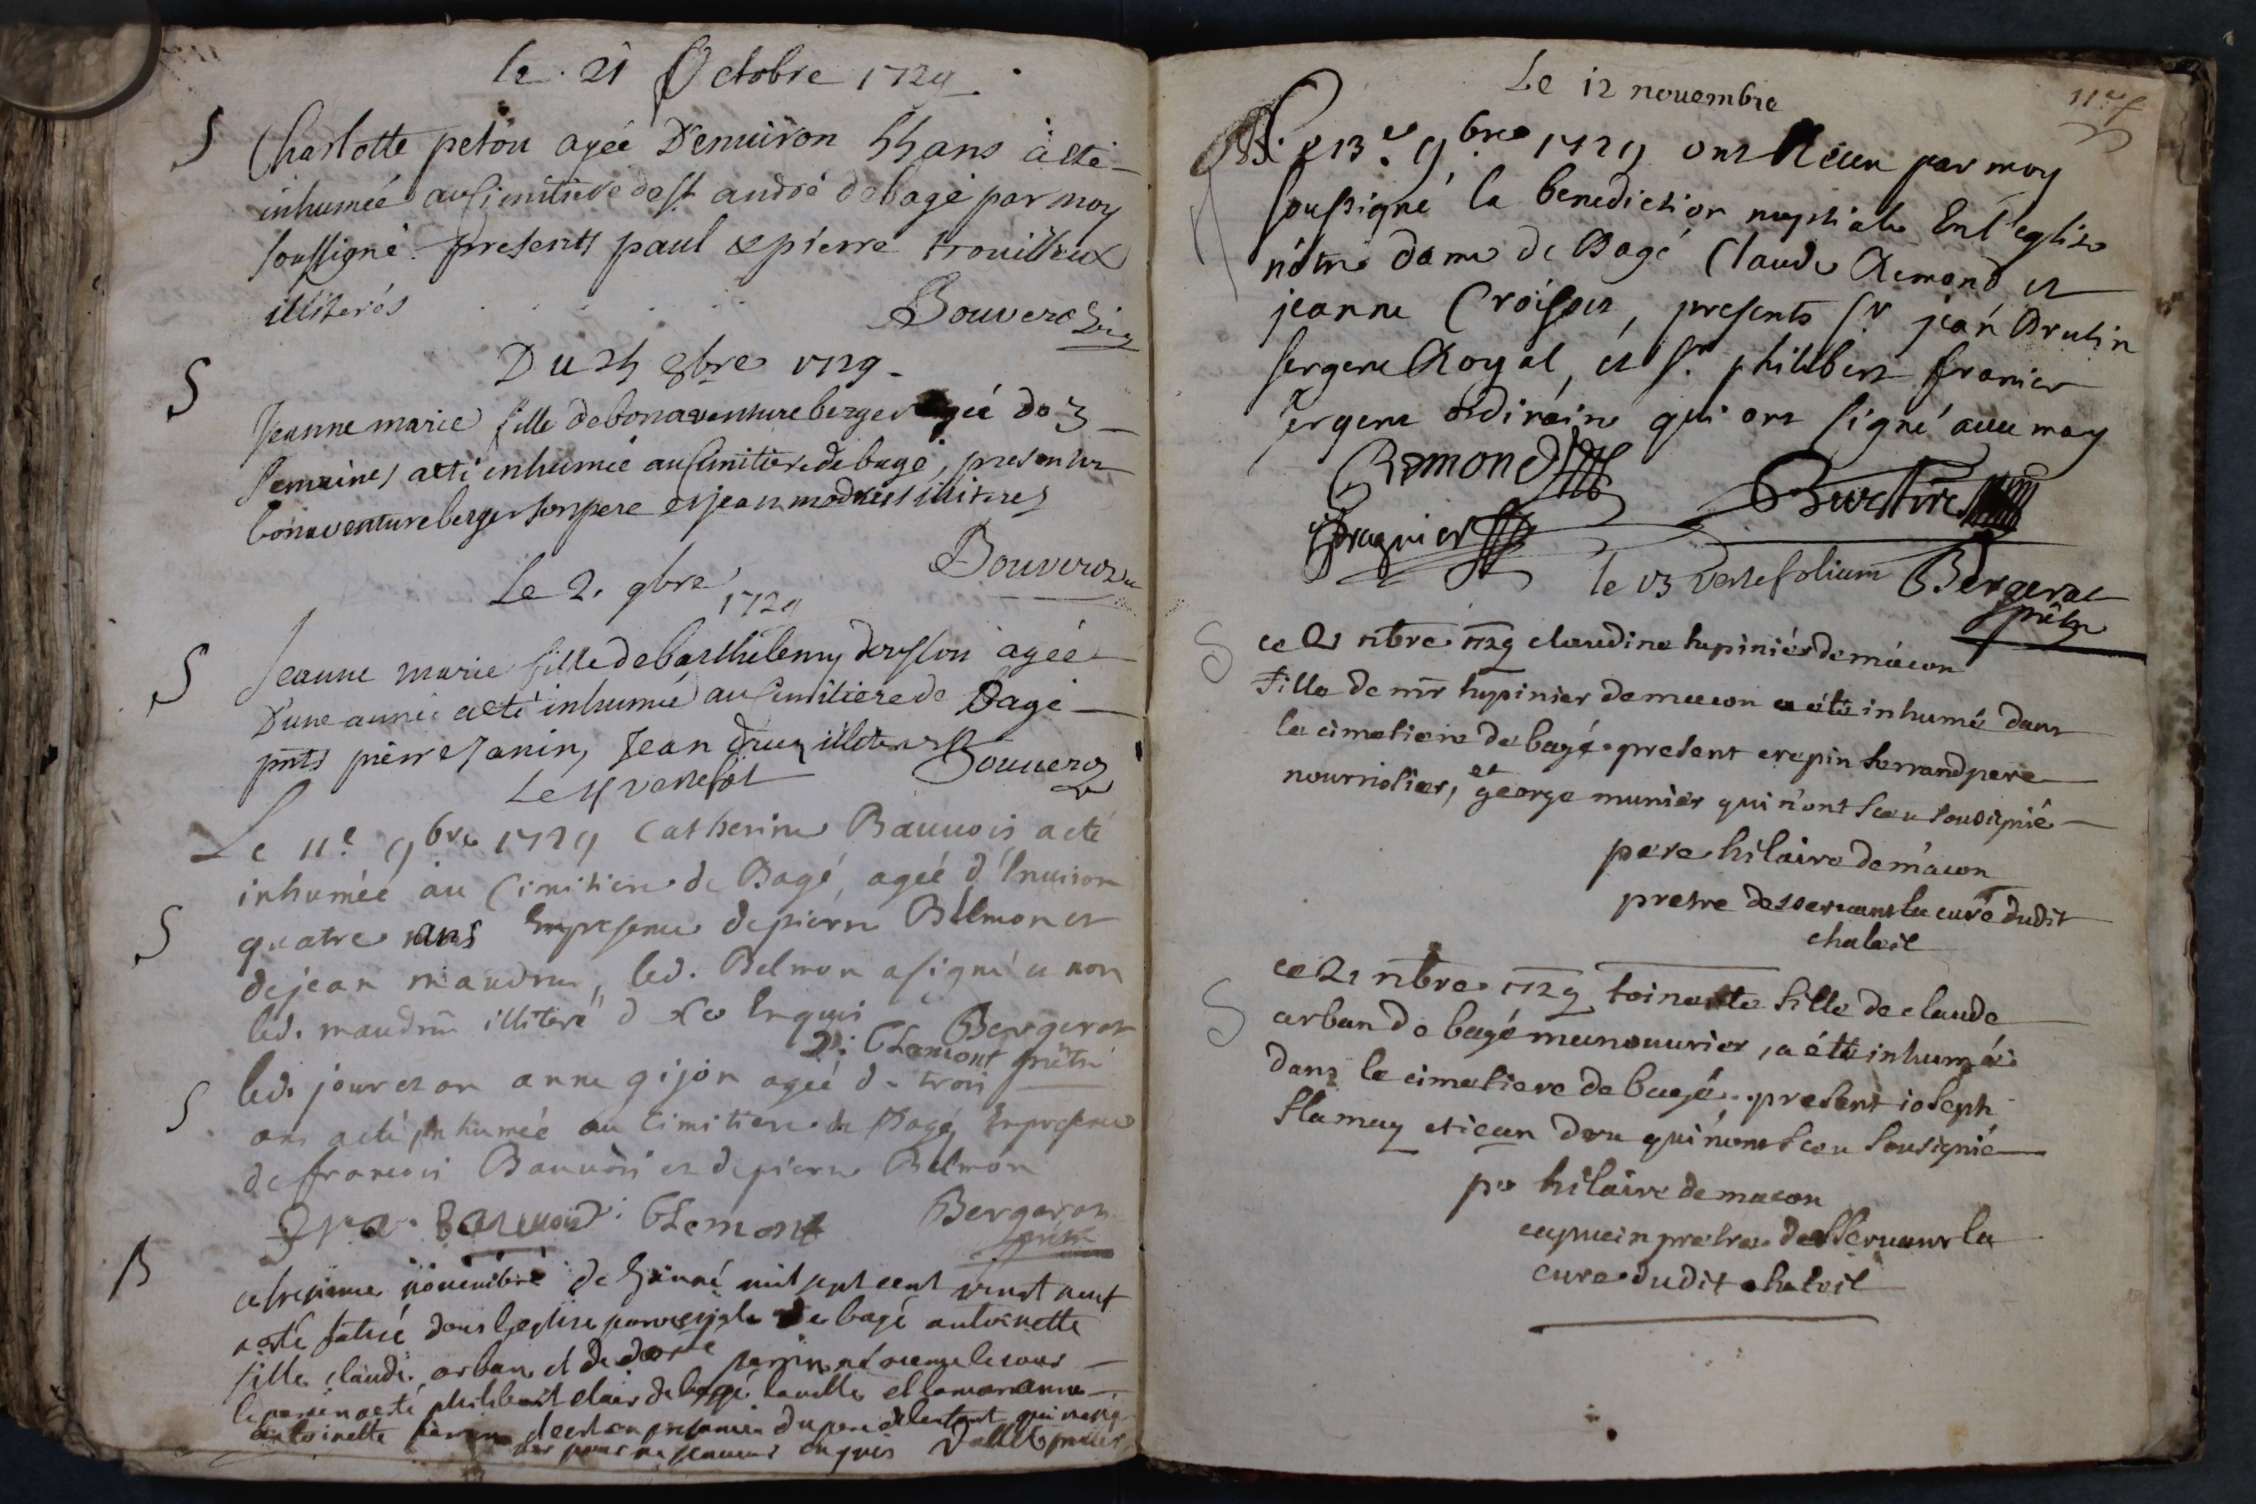 le 21 Octobre 1729
S Charlotte petou ageé D'enuiron 55 ans à eté
inhumeé au Cimitiere de st andré de bagé par moy
soussigné presents paul & pierre trouilloux
illiterés Bouveret
Du 25 8bre 1729
S Jeanne marie fille de bonaventure berger ageé de 3
semaines a eté inhumeé au Cimitiere de bagé, presentes
bonaventure berger son pere et jean illiteres
Bouveret
Le 2. 9bre
1729
S Jeanne marie fille de barthelemy agéé
D'une anneé a eté inhumeé au Cimitiere de Bagé
pnts pierre Janin, Jean illiteres Bouveret
Le 11 verte fol
Le 11e 9bre 1729 Catherine Bauuois a eté
inhumeé au Cimitiere de Bagé, ageé d'Enuiron
S quatre ans En presence de pierre Belmon et
de jean maudru, led. Belmon a signé et non
led. maudru illiteré d ce Enquis
D: bLemont Bergeret prêtre
S led. jour et an anne gijon ageé de trois
ans a eté inhumeé au Cimitiere de Bagé En presence
de francois Bauuois et de pierre Belmon
bLemont Bergeret
prêtre
B ce treisieme nouembre de Lanné mil sept cent vingt neuf
a esté batisé dans Leglise de bagé antoinette
fille claude arban et de
le parein a esté philibert clair de bagé la uille et la maraine
antoinette en presence du pere de lenfant qui
pour ne scauoir enquis
Le 12 nouembre
Le 13.e 9bre 1729 ont Receu par moy
soussigné la benediction nuptiale En l'eglise
nôtre dame de Bagé Claude Remond et
jeanne Croisset, presents Sr jean Brutin
sergent Royal, et Sr philibert franier
sergent ordinaire qui ont signé auec moy
Remond
Fragnier
le 13 verte folium Bergeret
prêtre
S ce 21 nbre 1729 claudine lupinier de mâcon
Fille de mr lupinier de macon a été inhumé dans
le cimetiere de bagé present crepin ferrand pere
nourricier, et george munier qui n'ont sceu sousignié
pere hilaire de mâcon
pretre desseruant la cure dudit
S ce 21 nbre 1729 toinette fille de claude
arban de bagé manouurier, a été inhumé
dans le cimetiere de bagé present ioseph
et iean qui n'ont sceu sousignié
pe hilaire de macon
capucin pretre desseruant la
cure dudit